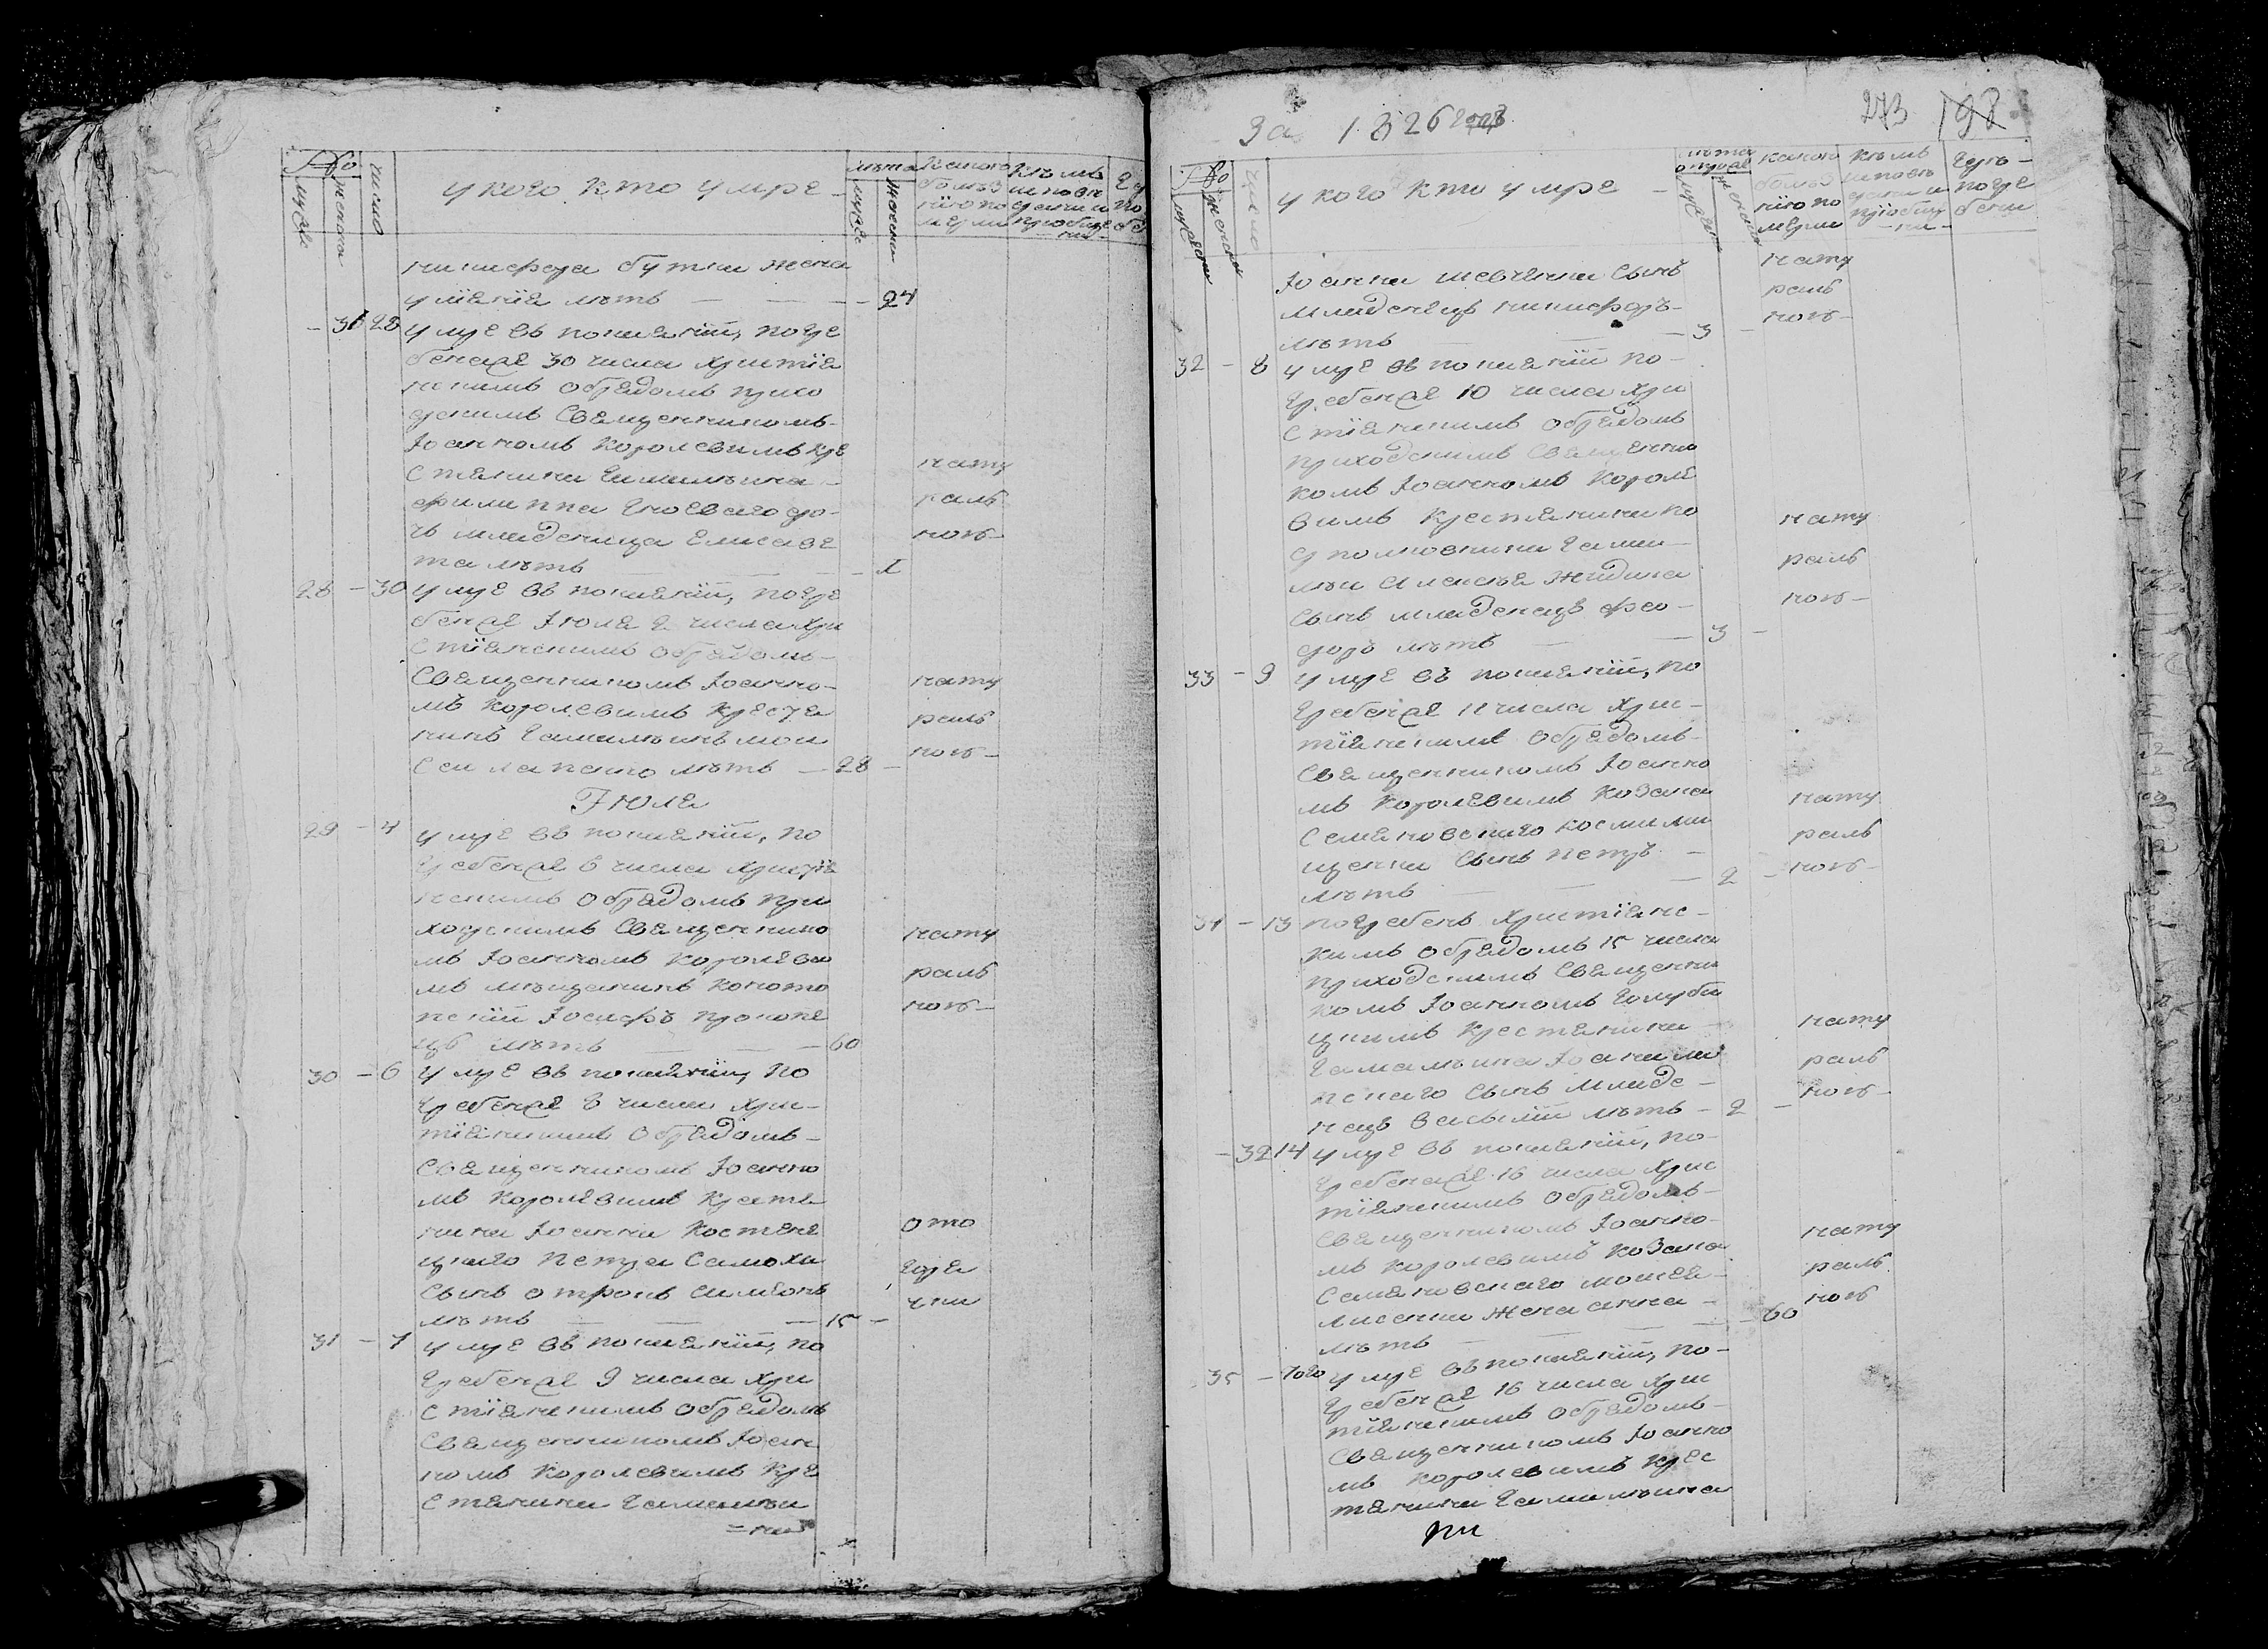 №
число
у кого кто умре
лѣта
какою болѣзнію померли
кѣмъ исповѣданы и пріобщены
мужска
женска
никифора бутки жена
уліанія лѣтъ — 24
— 31 28 умре въ покаяніи, погре
бенная 30 числа христіа
нскимъ обрядомъ прихо
дскимъ священникомъ
Іоанномъ королевимъ кре
стянина гамалѣина
филиппа его дво
чь младеница елисаве
та лѣтъ — 1
нату
раль
ною
28 — 30 умре въ покаяніи, погре
бенъ Іюля 2 числа хри
стіянскимъ обрядомъ
священникомъ Іоанно
мъ королевимъ крестя
нинъ гамалѣинъ мои
сеи лапенко лѣтъ — 28 —
нату
раль
ною
Іюля
29 — 4 умре въ покаяніи, по
гребенъ 6 числа христіа
нскимъ обрядомъ при
ходскимъ священнико
мъ Іоанномъ королеви
мъ мѣщанинъ коното
пскіи Іосифъ прокопе
цъ лѣтъ — 60
нату
раль
ною
30 — 6 умре въ покаяніи, по
гребенъ 8 числа хрис
тіянскимъ обрядомъ
священникомъ Іоанно
мъ королевимъ крестя
нина Іоанна костене
цкаго петра самохи
сынъ отрокъ симеонъ
лѣтъ — 15 —
ото
горя
чки
31 — 7 умре въ покаяніи, по
гребенъ 9 числа хри
стіянскимъ обрядомъ
священникомъ Іоан
номъ королевимъ кре
стянина гамалѣи
за 1826 годъ
273 198
№
число
у кого кто умре
лѣта
какою болѣзнію померли
кѣмъ исповѣданы и пріобщены
где погребены
Іоанна шевченка сынъ
младенецъ никифоръ
лѣтъ — 3 —
нату
раль
ною
32 — 8 умре въ покаяніи по
гребенъ 10 числа хри
стіянскимъ обрядомъ
приходскимъ священни
комъ Іоанномъ короле
вимъ крестянина по
дполковника гама
лѣи алексѣя жидика
сынъ младенецъ фео
доръ лѣтъ — 3 —
нату
раль
ною
33 — 9 умре въ покаяніи, по
гребенъ 11 числа хрис
тіянскимъ обрядомъ
священникомъ Іоанно
мъ королевимъ козака
семяновскаго косми ми
щенка сынъ петръ
лѣтъ — 2 —
нату
раль
ною
34 — 13 погребенъ христіянс
кимъ обрядомъ 15 числа
приходскимъ священни
комъ Іоанномъ голуби
цкимъ крестянина
гамалѣина Іоакима
пскаго сынъ младе
нецъ василіи лѣтъ — 2 —
нату
раль
ною
— 32 14 умре въ покаяніи, по
гребенная 16 числа хрис
тіянскимъ обрядомъ
священникомъ Іоанно
мъ королевимъ козака
семяновскаго моисея
лисенка жена анна
лѣтъ — 60
нату
раль
ною
35 — того умре въ покаяніи, по
гребенъ 16 числа хрис
тіянскимъ обрядомъ
священникомъ Іоанно
мъ королевимъ крес
тянина гамалѣина